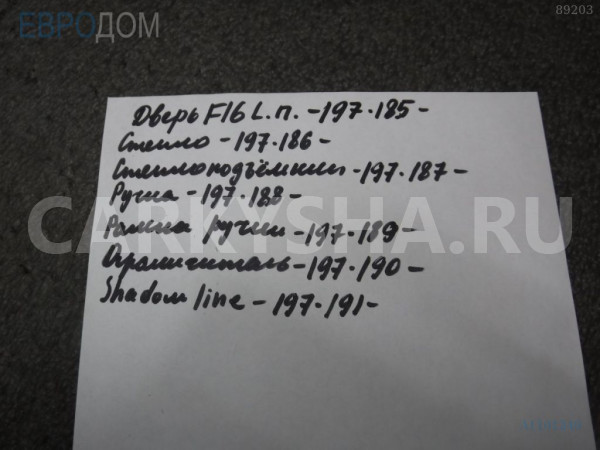 89203
ЕВРОДОМ
Дверь F16 L.п. -197.185-
Стекло -197.186-
Стеклоподъёмник -197.187-
Ручка -197.188-
Рамка ручки -197.189-
Ограничитель -197.190-
Shadow line -197.191-
CARKYSHA.RU